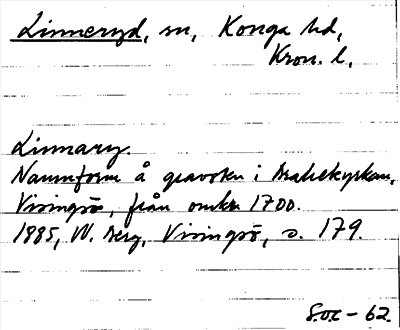 Linneryd, sn, Konga hd,
Kron. l.
Linnary.
Namnform å gravsten i Brahekyrkan,
Visingsö, från omkr 1700.
1885, W. Berg, Visingsö, s. 179.
S.O.C. - 62.